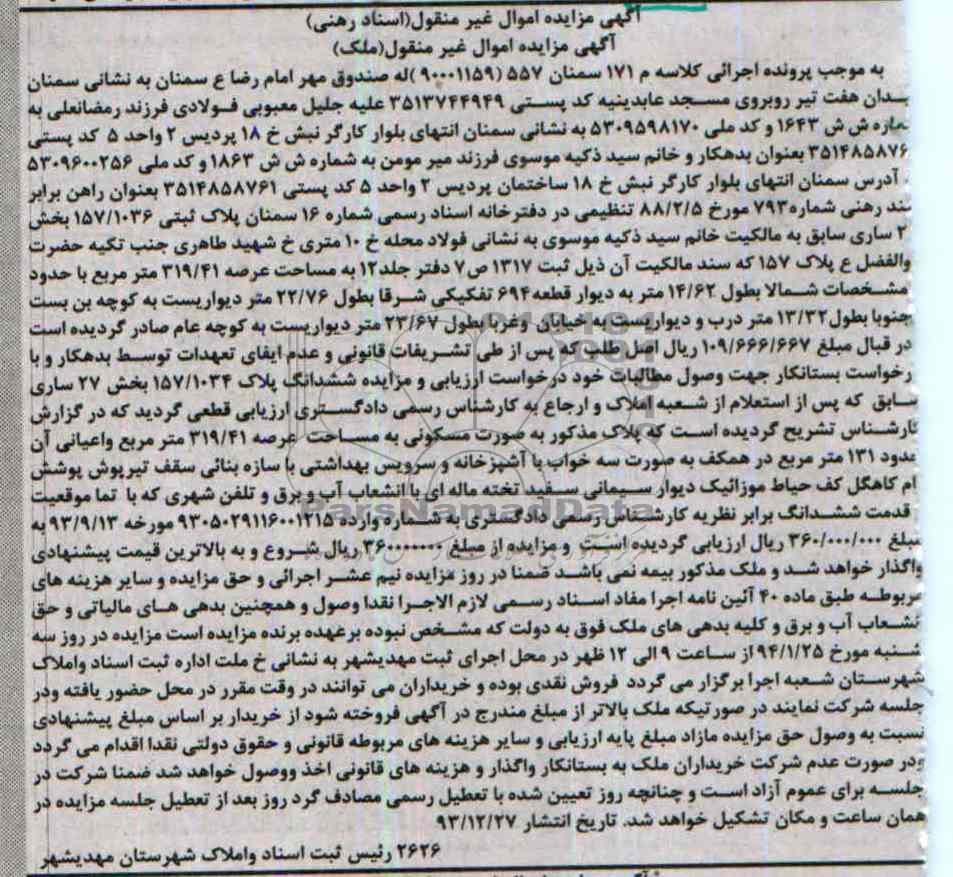 آگهی مزایده اموال غیر منقول(اسناد رهنی)
آگهی مزایده اموال غیر منقول(ملک)
به موجب پرونده اجرائی کلاسه م ۱۷۱ سمنان ۵۵۷ (۹۰۰۰۱۱۵۹)له صندوق مهر امام رضا ع سمنان به نشانی سمنان
هفت تیر روبروی مسجد عابدینیه کد پستی ۳۵۱۳۷۴۴۹۴۹ علیه جلیل معبوبی فولادی فرزند رمضانعلی به
ش ش ۱۶۴۳ و کد ملی ۵۳۰۹۵۹۸۱۷۰ به نشانی سمنان انتهای بلوار کارگر نبش خ ۱۸ پردیس ۲ واحد ۵ کد پستی
۳۵۱۴۸۵۸۷۶ بعنوان بدهکار و خانم سید ذکیه موسوی فرزند میر مومن به شماره ش ش ۱۸۶۳ و کد ملی ۵۳۰۹۶۰۰۲۵۶
آدرس سمنان انتهای بلوار کارگر نبش خ ۱۸ ساختمان پردیس ۲ واحد ۵ کد پستی ۳۵۱۴۸۵۸۷۶۱ بعنوان راهن برابر
سند رهنی شماره۷۹۳ مورخ ۸۸/۲/۵ تنظیمی در دفترخانه اسناد رسمی شماره ۱۶ سمنان پلاک ثبتی ۱۵۷/۱۰۳۶ بخش
۲ ساری سابق به مالکیت خانم سید ذکیه موسوی به نشانی فولاد محله خ ۱۰ متری خ شهید طاهری جنب تکیه حضرت
والفضل ع پلاک ۱۵۷ که سند مالکیت آن ذیل ثبت ۱۳۱۷ ص۷ دفتر جلد۱۲ به مساحت عرصه ۳۱۹/۴۱ متر مربع با حدود
مشخصات شمالا بطول ۱۴/۶۲ متر به دیوار قطعه۶۹۴ تفکیکی شرقا بطول ۲۲/۷۶ متر دیواریست به کوچه بن بست
جنوبا بطول۱۳/۳۲ متر درب و دیواریست به خیابان وغربا بطول ۲۳/۶۷ متر دیواریست به کوچه عام صادر گردیده است
در قبال مبلغ ۱۰۹/۶۶۶/۶۶۷ ریال اصل طلب که پس از طی تشریفات قانونی و عدم ایفای تعهدات توسط بدهکار و با
درخواست بستانکار جهت وصول مطالبات خود درخواست ارزیابی و مزایده ششدانگ پلاک ۱۵۷/۱۰۳۴ بخش ۲۷ ساری
سابق که پس از استعلام از شعبه املاک و ارجاع به کارشناس رسمی دادگستری ارزیابی قطعی گردید که در گزارش
کارشناس تشریح گردیده است که پلاک مذکور به صورت مسکونی به مساحت عرصه ۳۱۹/۴۱ متر مربع واعیانی آن
حدود ۱۳۱ متر مربع در همکف به صورت سه خواب با آشپزخانه و سرویس بهداشتی با سازه بنائی سقف تیرپوش پوشش
بام کاهگل کف حیاط موزائیک دیوار سیمانی سفید تخته ماله ای با انشعاب آب و برق و تلفن شهری که با تما موقعیت
و قدمت ششدانگ برابر نظریه کارشناس رسمی دادگستری به شماره وارده ۹۳۰۵۰۲۹۱۱۶۰۰۱۲۱۵ مورخه ۹۳/۹/۱۳ به
مبلغ ۳۶۰/۰۰۰/۰۰۰ ریال ارزیابی گردیده است و مزایده از مبلغ ۳۶۰۰۰۰۰۰۰ ریال شروع و به بالاترین قیمت پیشنهادی
واگذار خواهد شد و ملک مذکور بیمه نمی باشد ضمنا در روز مزایده نیم عشر اجرائی و حق مزایده و سایر هزینه های
مربوطه طبق ماده ۴۰ آئین نامه اجرا مفاد اسناد رسمی لازم الاجرا نقدا وصول و همچنین بدهی های مالیاتی و حق
انشعاب آب و برق و کلیه بدهی های ملک فوق به دولت که مشخص نبوده برعهده برنده مزایده است مزایده در روز سه
شنبه مورخ ۹۴/۱/۲۵ از ساعت ۹ الی ۱۲ ظهر در محل اجرای ثبت مهدیشهر به نشانی خ ملت اداره ثبت اسناد واملاک
شهرستان شعبه اجرا برگزار می گردد فروش نقدی بوده و خریداران می توانند در وقت مقرر در محل حضور یافته ودر
جلسه شرکت نمایند در صورتیکه ملک بالاتر از مبلغ مندرج در آگهی فروخته شود از خریدار بر اساس مبلغ پیشنهادی
نسبت به وصول حق مزایده مازاد مبلغ پایه ارزیابی و سایر هزینه های مربوطه قانونی و حقوق دولتی نقدا اقدام می گردد
ودر صورت عدم شرکت خریداران ملک به بستانکار واگذار و هزینه های قانونی اخذ ووصول خواهد شد ضمنا شرکت در
جلسه برای عموم آزاد است و چنانچه روز تعیین شده با تعطیل رسمی مصادف گرد روز بعد از تعطیل جلسه مزایده در
همان ساعت و مکان تشکیل خواهد شد. تاریخ انتشار ۹۳/۱۲/۲۷
۲۶۲۶ رئیس ثبت اسناد واملاک شهرستان مهدیشهر
ParsNamadData